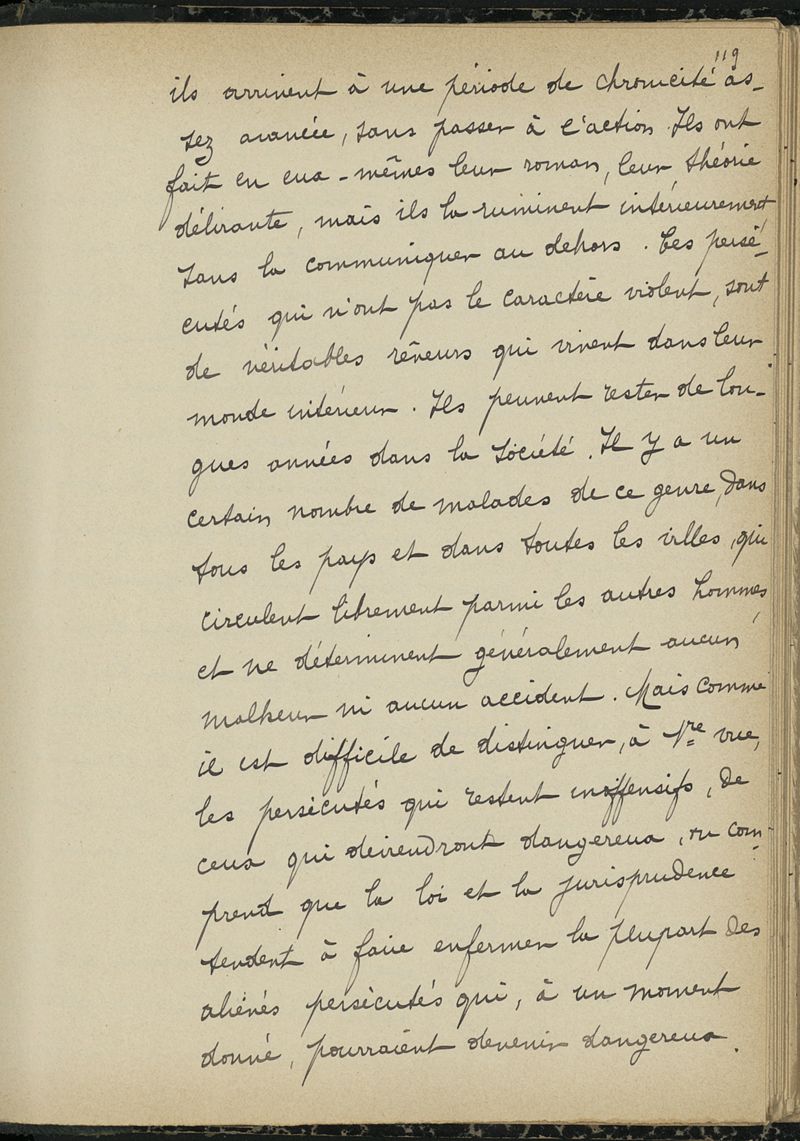 119
ils arrivent à une période de chronicité as-
sez avancée, sans passer à l'action. Ils ont
fait en eux-mêmes leur roman, leur théorie
délirante, mais ils la ruminent intérieurement
sans la communiquer au dehors. Ces persé-
cutés qui n'ont pas le caractère violent, sont
de véritables rêveurs qui vivent dans leur
monde intérieur. Ils peuvent rester de lon-
gues années dans la société. Il y a un
certain nombre de malades de ce genre, dans
tous les pays et dans toutes les villes, qui
circulent librement parmi les autres hommes,
et ne déterminent généralement aucun
malheur ni aucun accident. Mais comme
il est difficile de distinguer, à 1re vue,
les persécutés qui restent inoffensifs, de
ceux qui deviendront dangereux, on com-
prend que la loi et la jurisprudence
tendent à faire enfermer la plupart des
aliénés persécutés qui, à un moment
donné, pourraient devenir dangereux.